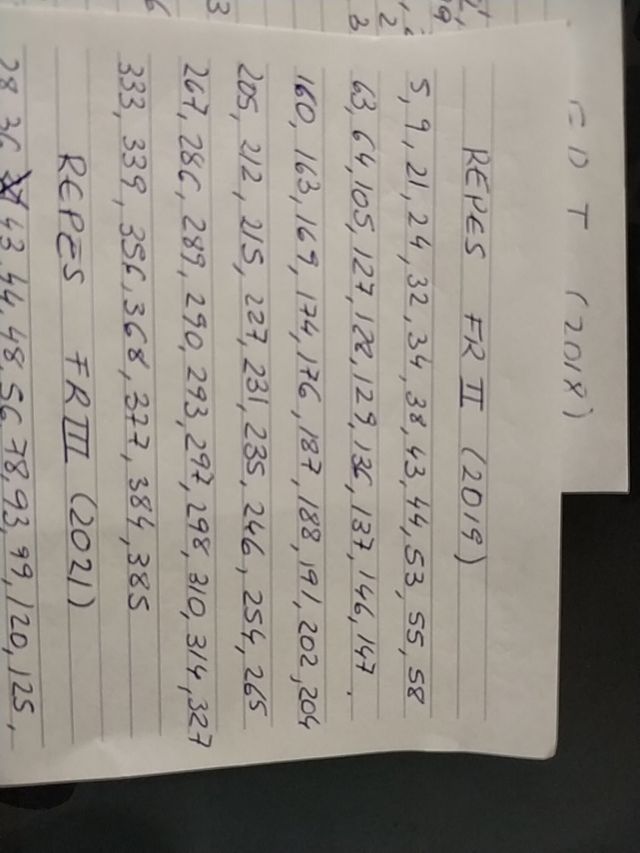 EDT (2018)
REPES FR II (2019)
5, 9, 21, 24, 32, 34, 38, 43, 44, 53, 55, 58
63, 64, 105, 127, 128, 129, 136, 137, 146, 147.
160, 163, 169, 174, 176, 187, 188, 191, 202, 204
205, 212, 215, 227, 231, 235, 246, 254, 265
267, 286, 289, 290, 293, 297, 298, 310, 314, 327
333, 339, 356, 368, 377, 384, 385
REPES FR III (2021)
28 36 43, 44, 48, 56, 78, 93, 99, 120, 125,